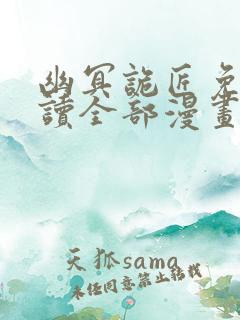 幽冥詭匠免
讀全部漫畫
天狐sama
未经同意禁止转载